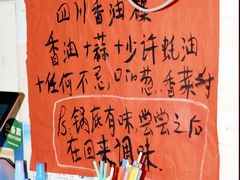 四川香油碟
香油+蒜+少许蚝油
+任何不忌口的葱.香菜等
Ps.锅底有味尝尝之后
在回来调味